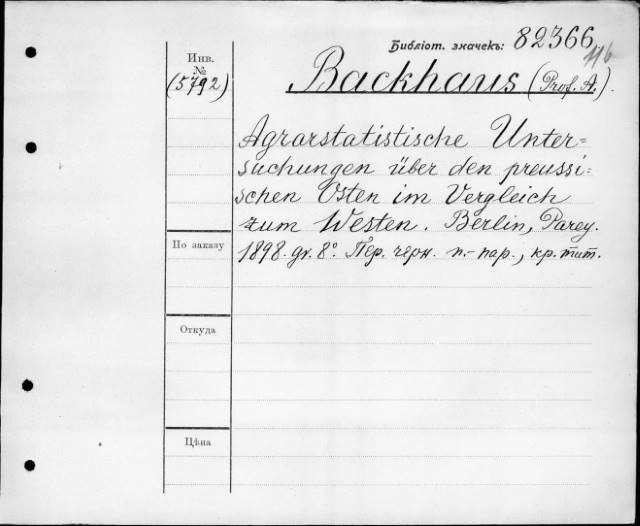 Библіот. значекъ: 82366
Инв.
№
(5792)
Backhaus (Prof. A.).
Agrarstatistische Unter=
suchungen über den preussi=
schen Osten im Vergleich
zum Westen. Berlin, Parey.
1898. gr. 8°. Пер. черн. п.-пар., кр. тит.
По заказу
Откуда
Цѣна